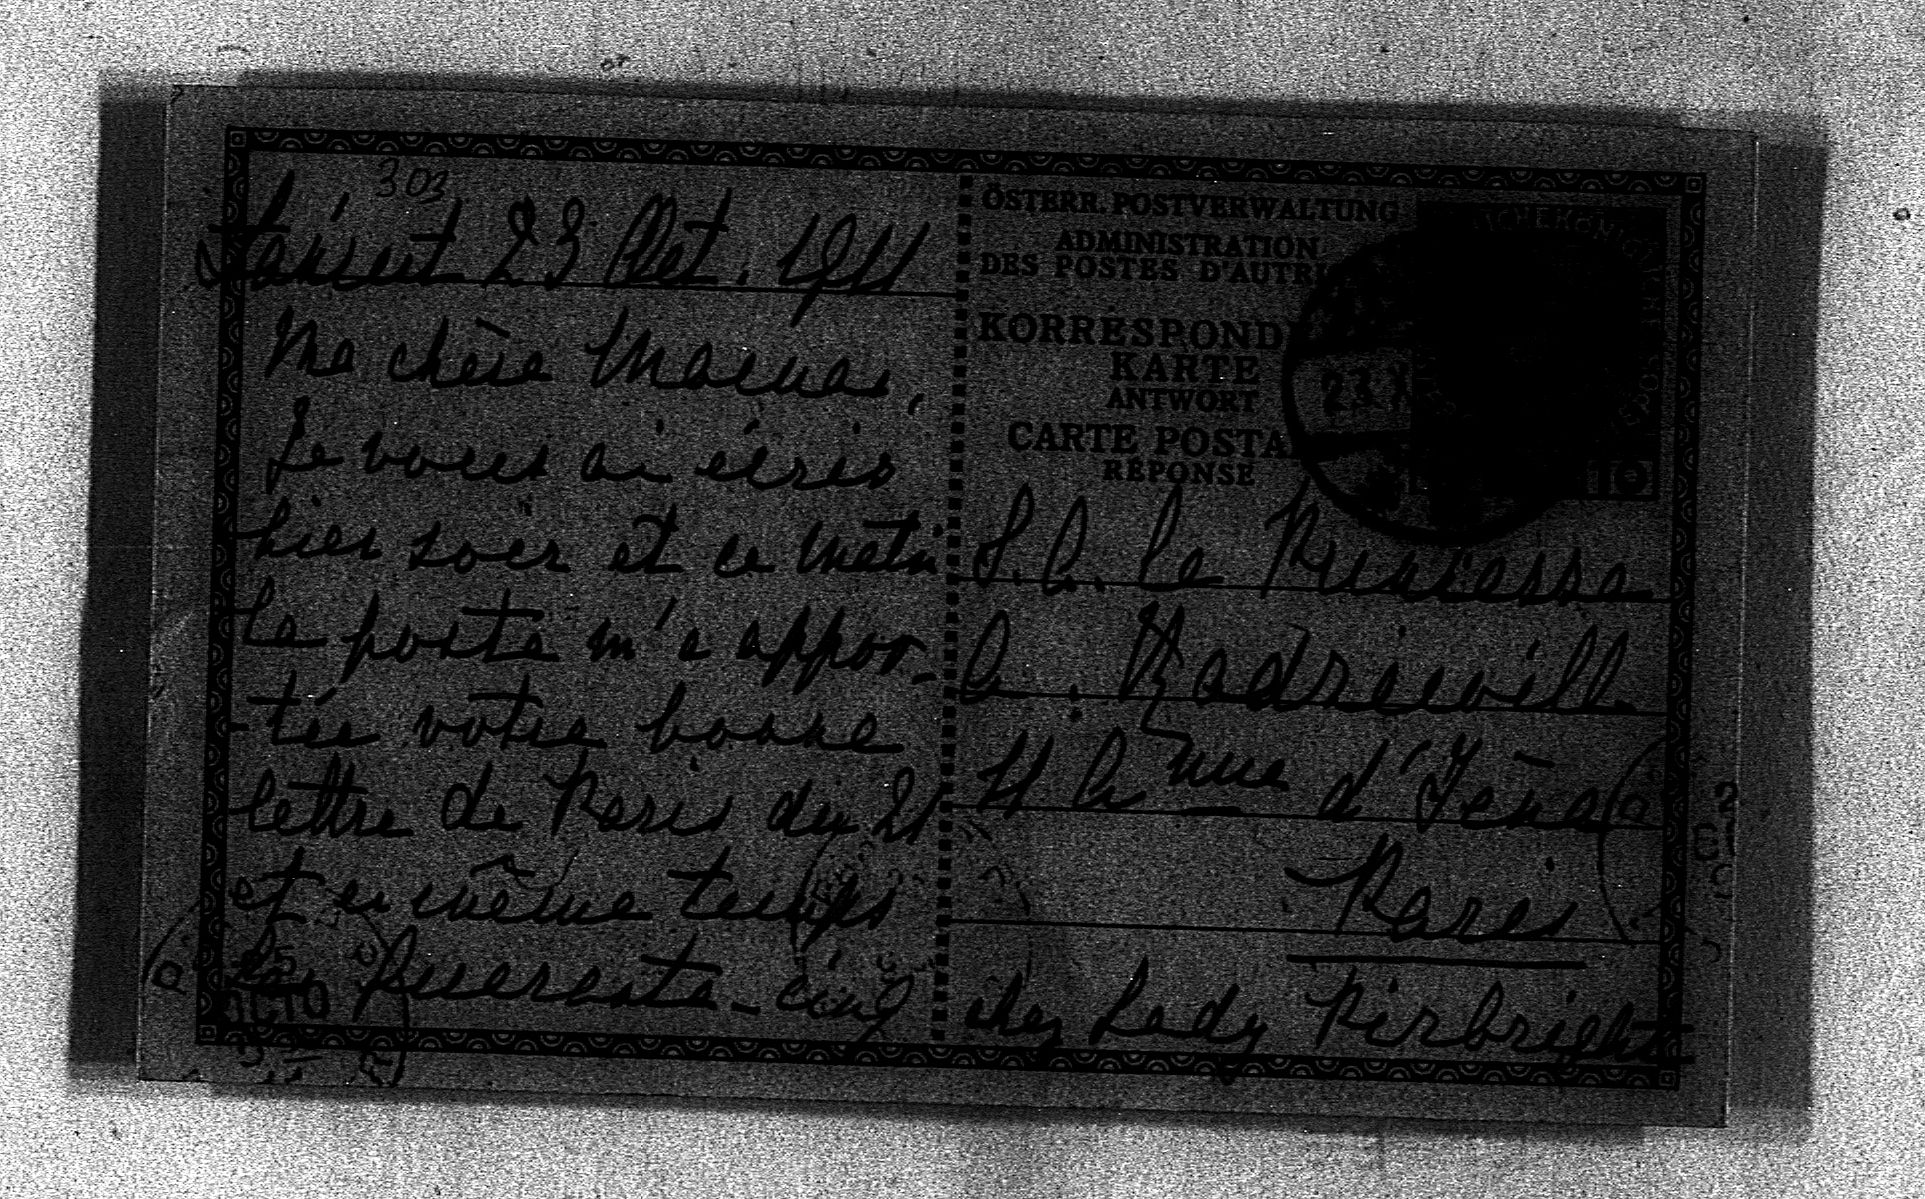 303
Łańcut 23 Oct. 1911
Ma chère Maman,
Je vous ai écris
hier soir et ce matin
la poste m'a appor-
-tée votre bonne
lettre de Paris du 21
et en même temps
les quarante-cinq
ÖSTERR. POSTVERWALTUNG
ADMINISTRATION
DES POSTES D'AUTRI
KORRESPONDE
KARTE
ANTWORT
CARTE POSTA
RÉPONSE
23.X
10
S. A. La Princesse
A. Radziwill
11 Aᵛᵉⁿᵘᵉ d'Iéna
Paris
chez Lady Pirbright